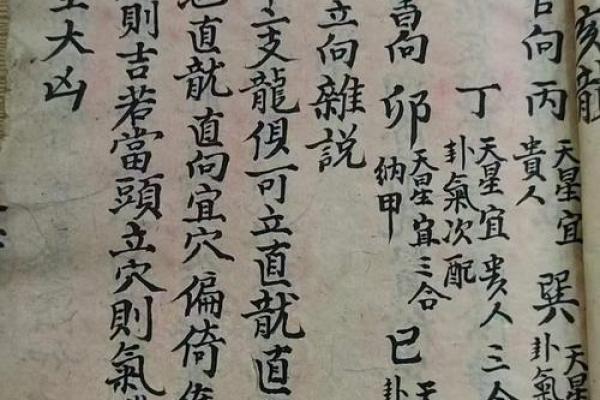 亥龍
向丙天星宜貴人巽天星卦氣
丁天星宜貴人三合卦氣次配
向卯天星宜三合納甲巳天卦
立向雜說
二支龍俱可立直龍直
直龍直向宜穴偏倚
則吉若當頭立穴則氣
大凶